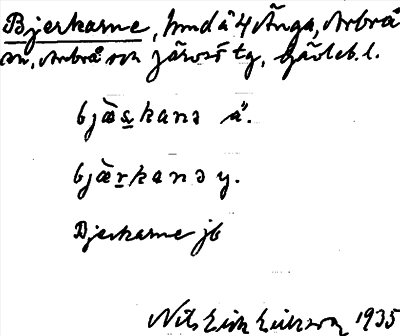 Bjerkarne, hmd å 4 Änga, Arbrå
sn, Arbrå och Järvsö tg, Gävleb. l.
bjæ̀s̱kanə ä.
bjæ̀ṟkanə y.
Bjerkarne jb
Nils Erik Eriksson 1935